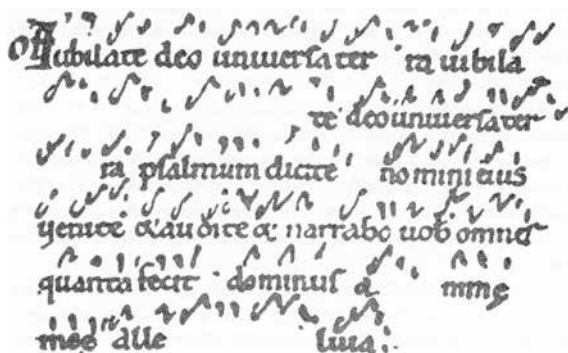 Of Iubilate deo uniuersa ter ra iubila
te deo uniuersa ter
ra psalmum dicite nomini eius
uenite & audite & narrabo uob omnes
quanta fecit dominus a nimę
meę alle luia.